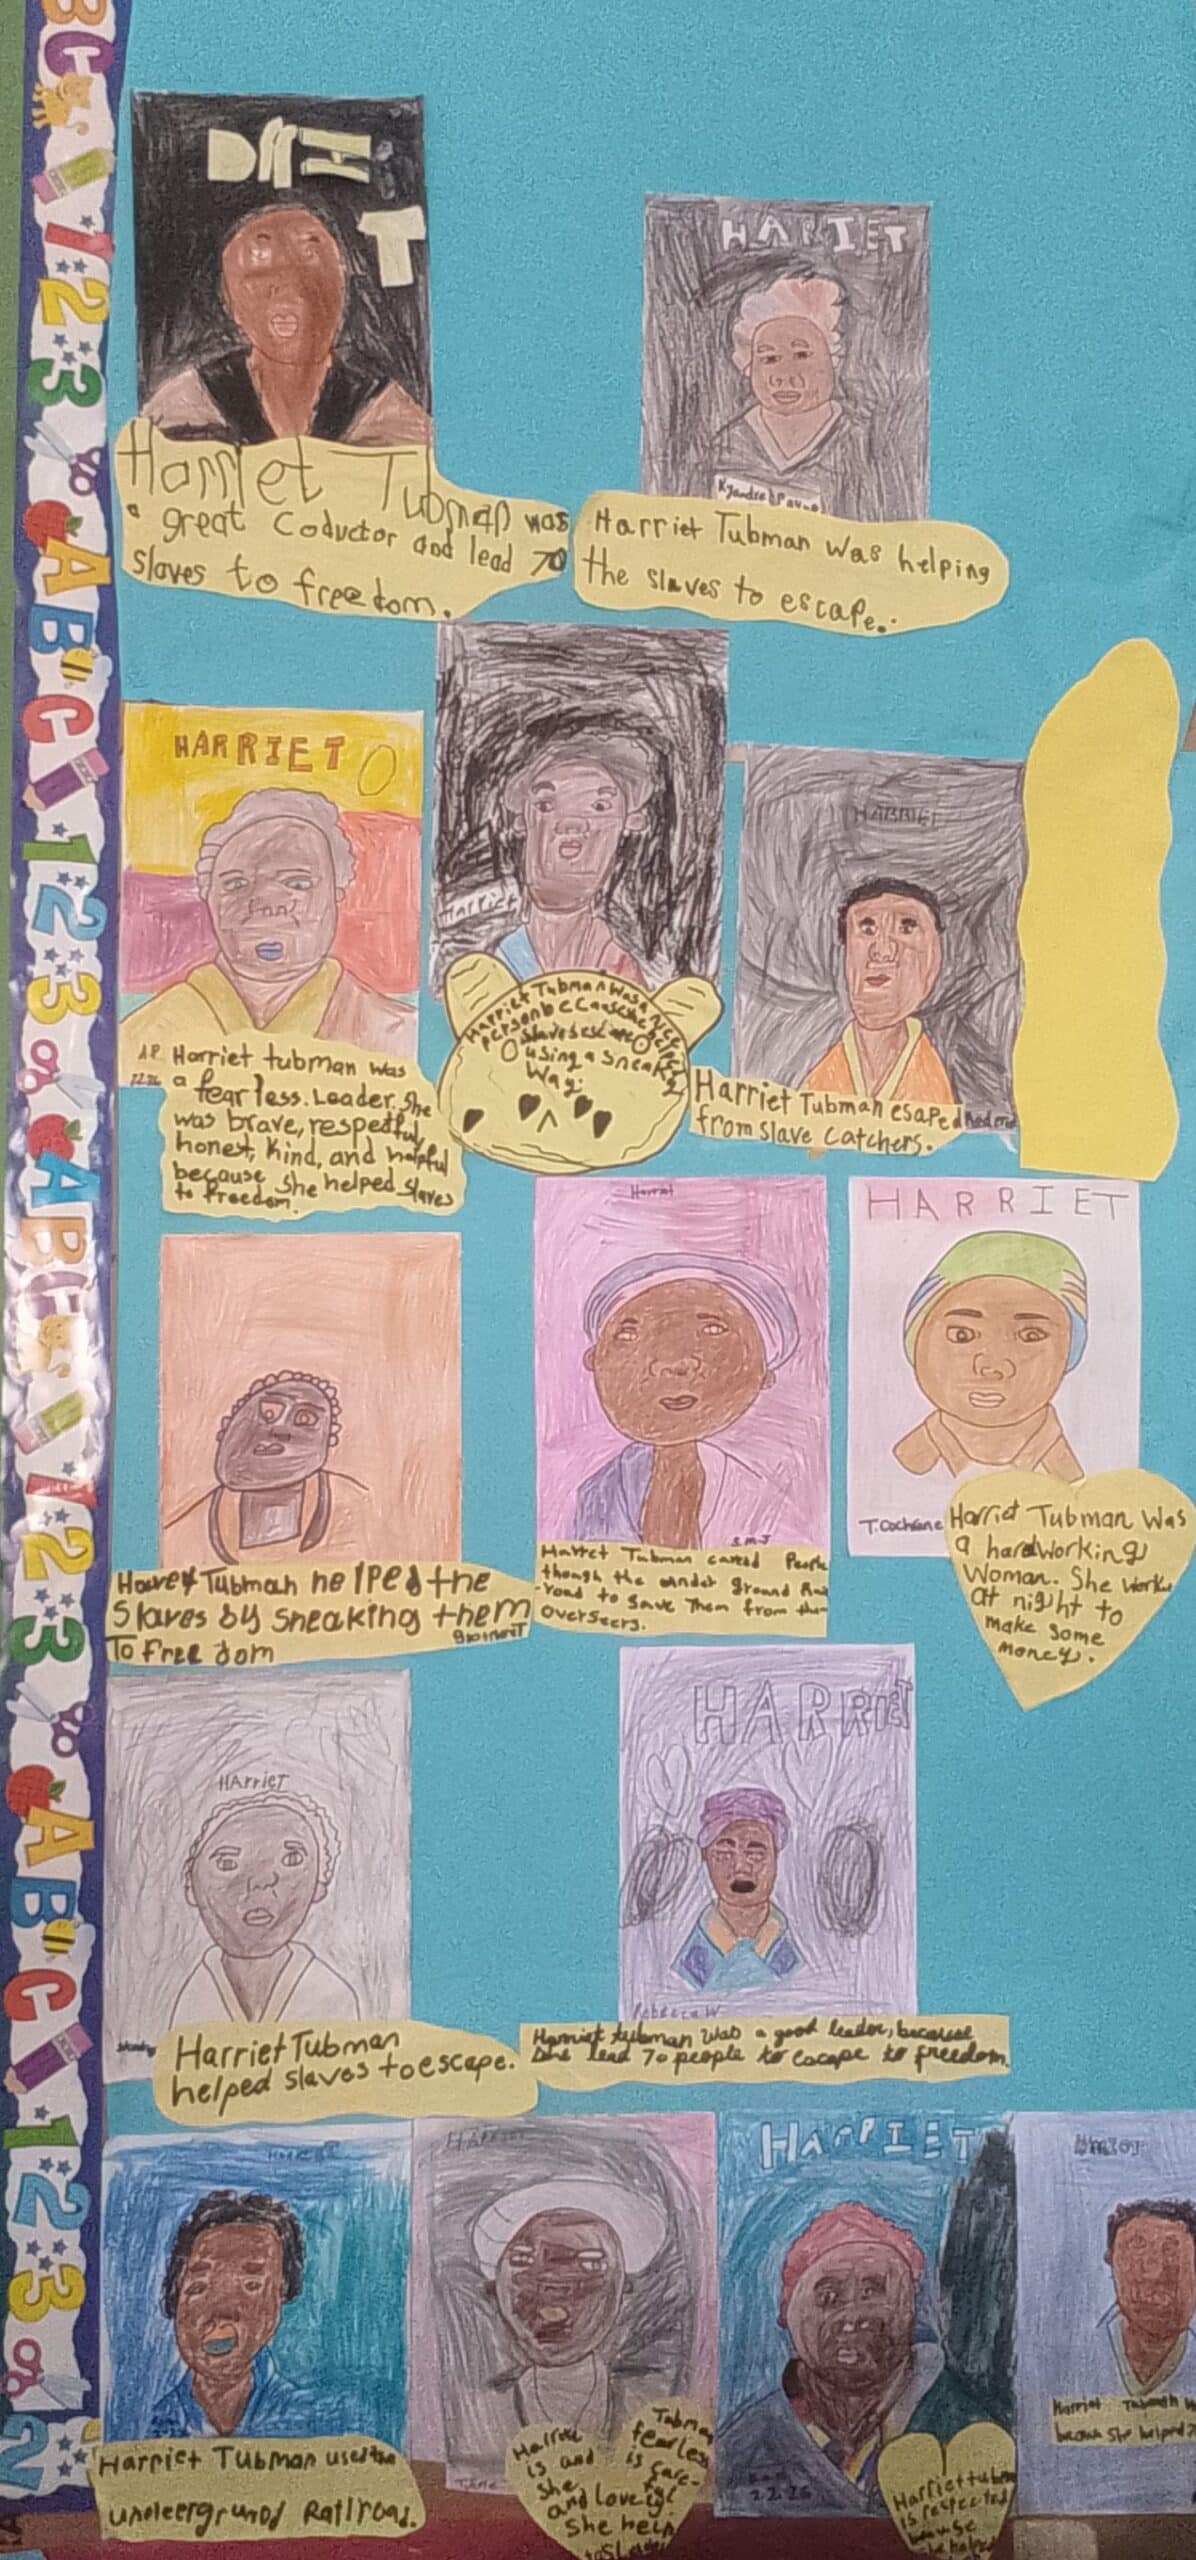 HARRIET
Harriet Tubman was
a great Coductor and lead 70
slaves to freedom.
HARIET
Harriet Tubman was helping
the slaves to escape.
HARRIET
A.P. Harriet tubman was
a fearless. Leader. She
was brave, respectful,
honest, kind, and helpful
because she helped slaves
to freedom.
Harriet
Harriet Tubman was a nice
person because she helped
slaves escape
using a sneaky
way.
HARRIET
Harriet Tubman esaped
from slave catchers.
Tubman helped the
slaves by sneaking them
To freedom
Harriet
S.M.J
Tubman People
though the under ground
road to save Them from the
overseers.
HARRIET
T. Cochrane
Harriet Tubman was
a hardworking
woman. She work
at night to
make some
money.
HArrieT
Harriet Tubman
helped slaves to escape.
HARRIET
Rebecca W
Harriet tubman was a good leader, because
she lead 70 people to escape to freedom.
Harriet Tubman used
Railroad.
HARRIET
Tubman
fearless
is and is care-
She ful
and loveing
She help
HARRIET
2.2.26
Harriet tubm
is respected
because
she helped
Harriet Tubman
she helped
A B C 1 2 3
A B C 1 2 3
A B C 1 2 3
A B C 1 2 3